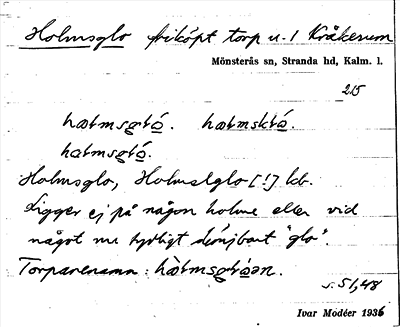 Holmsglo friköpt torp u. 1 Kråkerum
Mönsterås sn, Stranda hd, Kalm. l.
215
Holmsglo, Holmalglo [!] kb.
Ligger ej på någon holme eller vid
något nu tydligt skönjbart "glo".
Torparenamn:
s. 51, 48
Ivar Modéer 1936